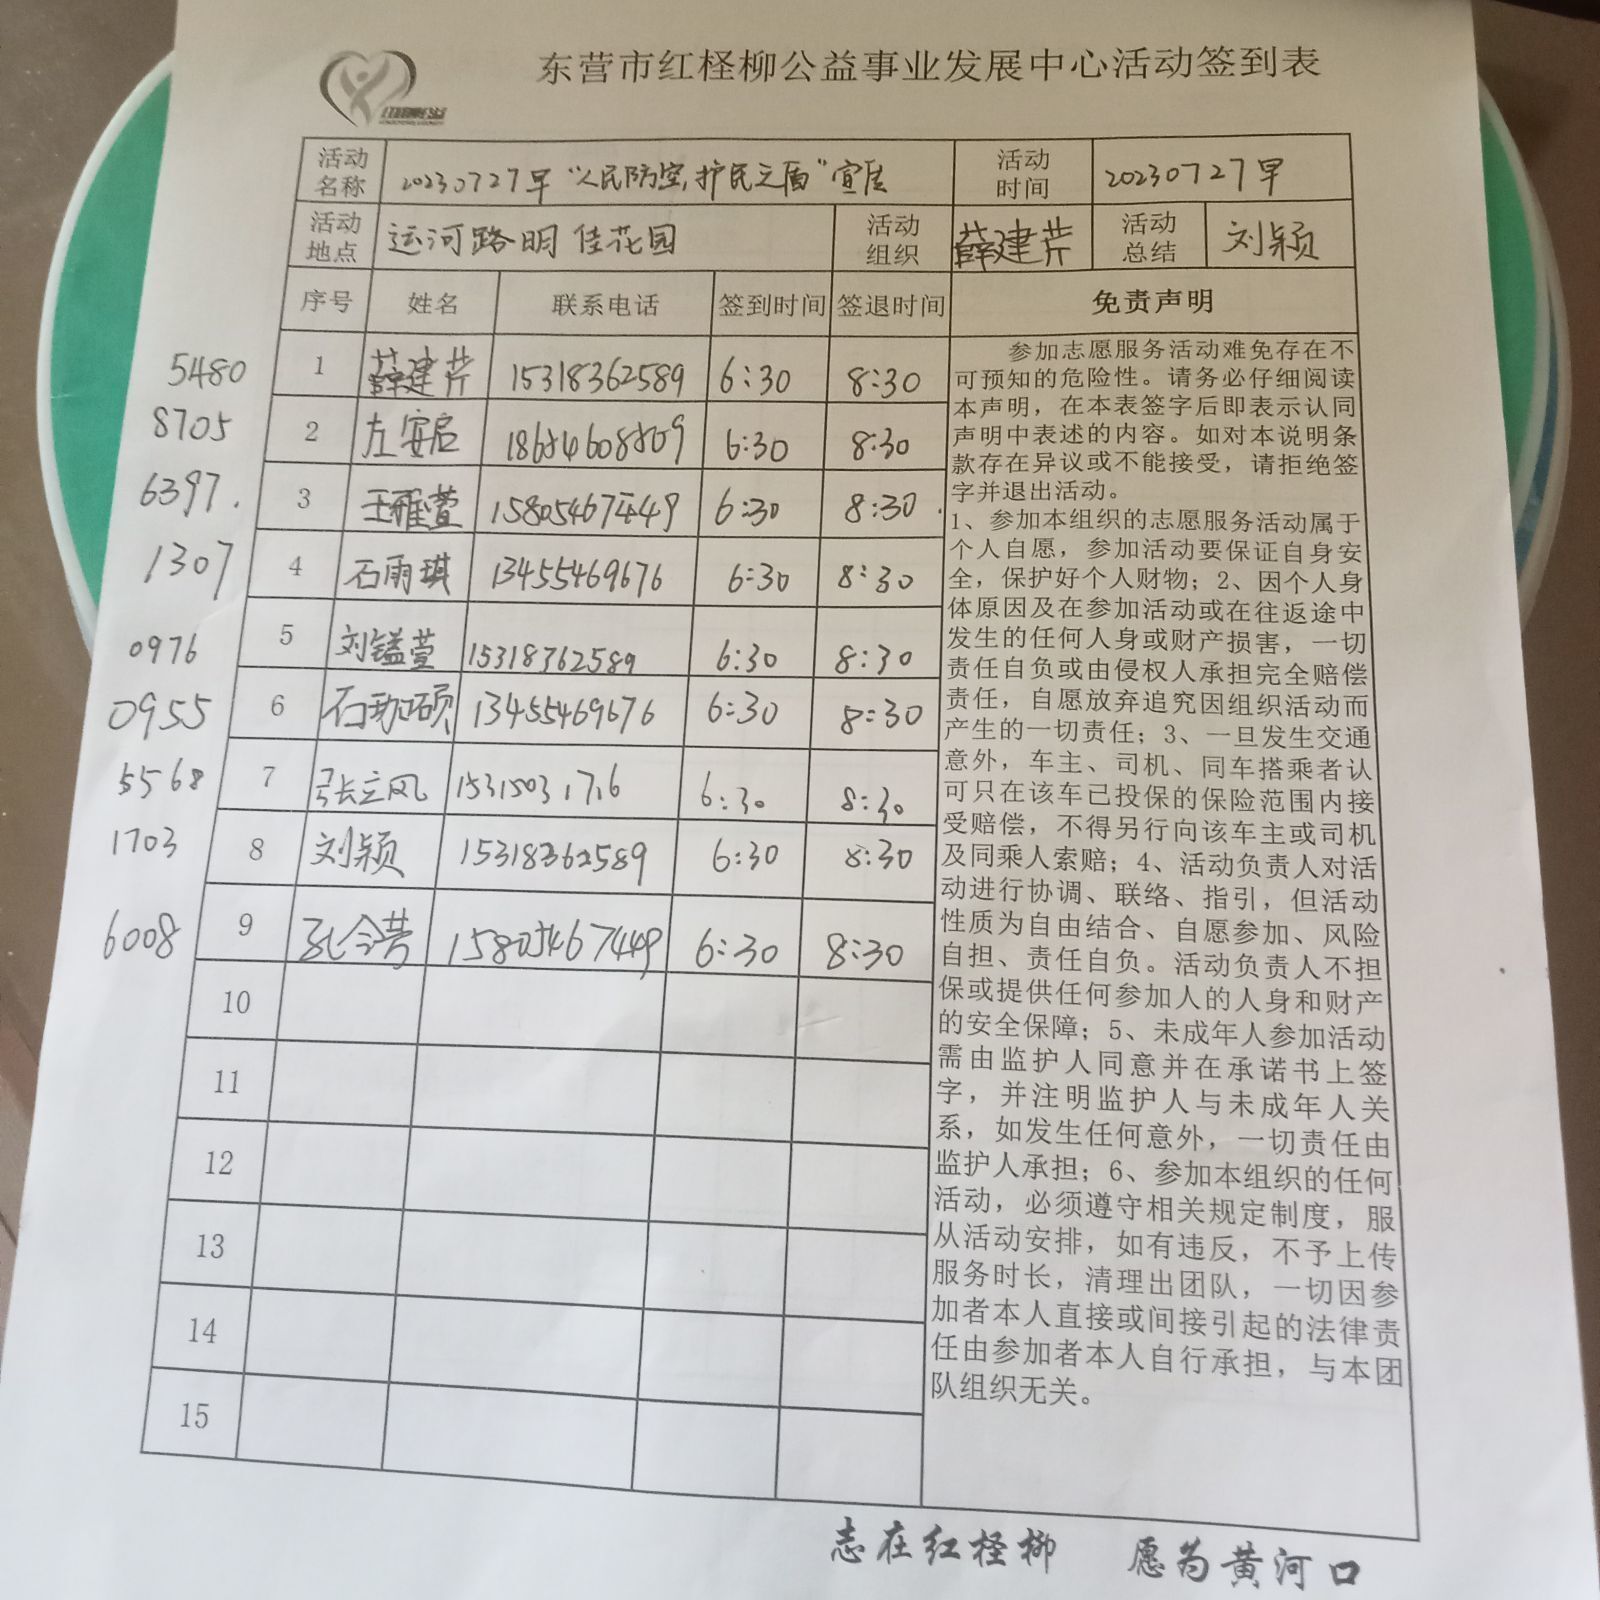 东营市红柽柳公益事业发展中心活动签到表
活动名称 20230727早“人民防空,护民之盾”宣传 活动时间 20230727早
活动地点 运河路明佳花园 活动组织 薛建芹 活动总结 刘颖
序号 姓名 联系电话 签到时间 签退时间 免责声明
5480 1 薛建芹 15318362589 6:30 8:30
8705 2 左安启 6:30 8:30
6397. 3 王雅萱 15805467449 6:30 8:30
1307 4 石雨琪 13455469676 6:30 8:30
0976 5 刘镒萱 15318362589 6:30 8:30
0955 6 13455469676 6:30 8:30
5568 7 张立风 15315031716 6:30 8:30
1703 8 刘颖 15318362589 6:30 8:30
6008 9 孔令芸 15805467449 6:30 8:30
10
11
12
13
14
15
参加志愿服务活动难免存在不
可预知的危险性。请务必仔细阅读
本声明，在本表签字后即表示认同
声明中表述的内容。如对本说明条
款存在异议或不能接受，请拒绝签
字并退出活动。
1、参加本组织的志愿服务活动属于
个人自愿，参加活动要保证自身安
全，保护好个人财物；2、因个人身
体原因及在参加活动或在往返途中
发生的任何人身或财产损害，一切
责任自负或由侵权人承担完全赔偿
责任，自愿放弃追究因组织活动而
产生的一切责任；3、一旦发生交通
意外，车主、司机、同车搭乘者认
可只在该车已投保的保险范围内接
受赔偿，不得另行向该车主或司机
及同乘人索赔；4、活动负责人对活
动进行协调、联络、指引，但活动
性质为自由结合、自愿参加、风险
自担、责任自负。活动负责人不担
保或提供任何参加人的人身和财产
的安全保障；5、未成年人参加活动
需由监护人同意并在承诺书上签
字，并注明监护人与未成年人关
系，如发生任何意外，一切责任由
监护人承担；6、参加本组织的任何
活动，必须遵守相关规定制度，服
从活动安排，如有违反，不予上传
服务时长，清理出团队，一切因参
加者本人直接或间接引起的法律责
任由参加者本人自行承担，与本团
队组织无关。
志在红柽柳 愿为黄河口